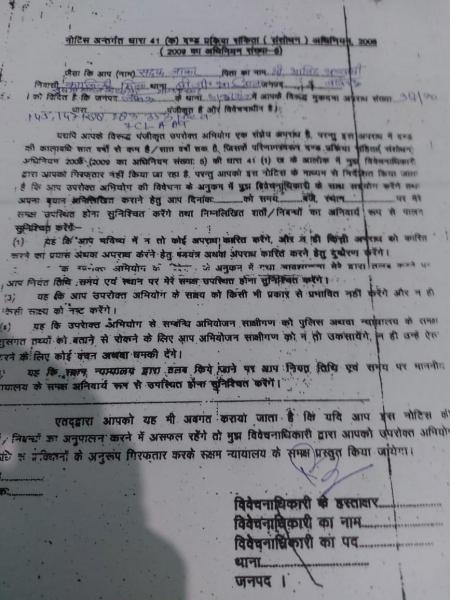 नोटिस अन्तर्गत धारा 41 (क) दण्ड प्रक्रिया संहिता ( संशोधन ) अधिनियम, 2008
( 2009 का अधिनियम संख्या-5)
जैसा कि आप (नाम) पिता का नाम
निवासी
को विदित है कि जनपद के थाना आपके विरुद्ध मुकदमा अपराध संख्या
पंजीकृत है और विवेचनाधीन है।
यद्यपि आपके विरुद्ध पंजीकृत उपरोक्त अभियोग एक संज्ञेय अपराध है, परन्तु इस अपराध में दण्ड
की कालावधि सात वर्षों से कम है/ सात वर्षों तक है, जिसमें दण्ड प्रक्रिया संहिता संशोधन
अधिनियम 2008 (2009 का अधिनियम संख्या: 5) की धारा 41 (1) ख के आलोक में मुझ विवेचनाधिकारी
द्वारा आपको गिरफ्तार नहीं किया जा रहा है, परन्तु आपको इस नोटिस के माध्यम से निर्देशित किया जाता
है कि आप उपरोक्त अभियोग की विवेचना के अनुक्रम में मुझ विवेचनाधिकारी के साथ सहयोग करेंगे तथा
अपना बयान अभिलिखित कराने हेतु आप दिनांक........को समय........बजे, स्थान........पर मेरे
समक्ष उपस्थित होना सुनिश्चित करेंगे तथा निम्नलिखित शर्तों/निबन्धों का अनिवार्य रूप से पालन
सुनिश्चित करेंगे-
(1) यह कि आप भविष्य में न तो कोई अपराध कारित करेंगे, और न ही किसी अपराध को कारित
करने का प्रयास अथवा अपराध करने हेतु षडयंत्र अथवा अपराध कारित करने हेतु दुष्प्रेरण करेंगे।
अभियोग के अनुक्रम में
आप नियत तिथि, समय एवं स्थान पर मेरे समक्ष उपस्थित होना सुनिश्चित करेंगे।
(3) यह कि आप उपरोक्त अभियोग के साक्ष्य को किसी भी प्रकार से प्रभावित नहीं करेंगे और न ही
किसी साक्ष्य को नष्ट करेंगे।
यह कि उपरोक्त अभियोग से सम्बन्धि अभियोजन साक्षीगण को पुलिस अथवा न्यायालय के समक्ष
सुसंगत तथ्यों को बताने से रोकने के लिए आप अभियोजन साक्षीगण को न तो उकसायेंगे, न ही उन्हें ऐसा
करने के लिए कोई वचन अथवा धमकी देंगे।
यह कि सक्षम न्यायालय द्वारा तलब किये जाने पर आप नियत तिथि एवं समय पर माननीय
न्यायालय के समक्ष अनिवार्य रूप से उपस्थित होना सुनिश्चित करेंगे।
एतद्द्वारा आपको यह भी अवगत कराया जाता है कि यदि आप इस नोटिस की
निबन्धों का अनुपालन करने में असफल रहेंगे तो मुझ विवेचनाधिकारी द्वारा आपको उपरोक्त अभियोग
के अनुरूप गिरफ्तार करके सक्षम न्यायालय के समक्ष प्रस्तुत किया जायेगा।
विवेचनाधिकारी के हस्ताक्षर............
विवेचनाधिकारी का नाम............
विवेचनाधिकारी का पद............
थाना............
जनपद ।